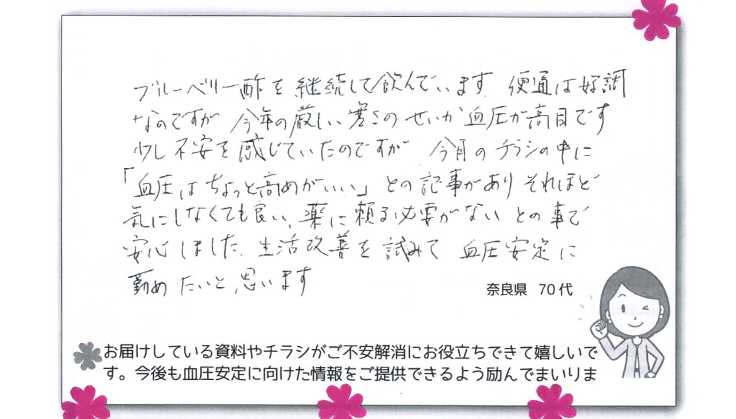 ブルーベリー酢を継続して飲んでいます 便通は好調
なのですが 今年の厳しい寒さのせいか血圧が高目です
少し不安を感じていたのですが 今月のチラシの中に
「血圧はちょっと高めがいい」との記事があり それほど
気にしなくても良い、薬に頼る必要がない との事で
安心しました、生活改善を試みて 血圧安定に
勤めたいと思います
奈良県 70代
お届けしている資料やチラシがご不安解消にお役立ちできて嬉しいで
す。今後も血圧安定に向けた情報をご提供できるよう励んでまいりま